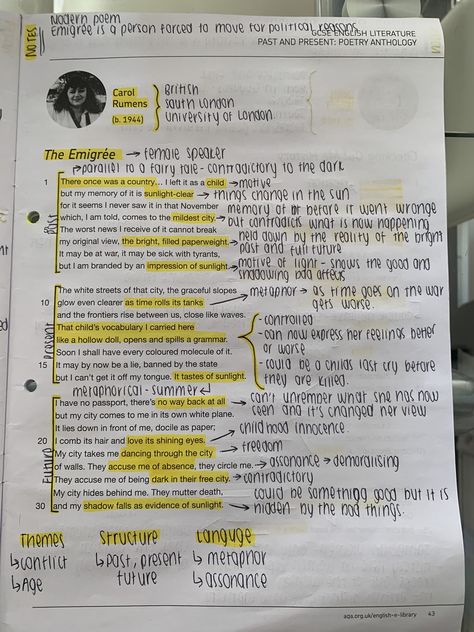 NOTES
Modern poem
Emigrée is a person forced to move for political reasons
GCSE ENGLISH LITERATURE
PAST AND PRESENT: POETRY ANTHOLOGY
Carol
Rumens
(b. 1944)
British
South London
University of London.
The Emigrée → female speaker
↱parallel to a fairy tale - contradictory to the dark
Past
1 There once was a country… I left it as a child → motive
but my memory of it is sunlight-clear → things change in the sun
for it seems I never saw it in that November
memory of it before it went wronge
which, I am told, comes to the mildest city. → but contradicts what is now happening
The worst news I receive of it cannot break
held down by the reality of the bright
my original view, the bright, filled paperweight. → past and full future
It may be at war, it may be sick with tyrants,
but I am branded by an impression of sunlight. → motive of light - shows the good and
shadowing bad affects
Present
The white streets of that city, the graceful slopes
metaphor → as time goes on the war
10 glow even clearer as time rolls its tanks
gets worse.
and the frontiers rise between us, close like waves.
That child's vocabulary I carried here
like a hollow doll, opens and spills a grammar.
Soon I shall have every coloured molecule of it.
15 It may by now be a lie, banned by the state
but I can't get it off my tongue. It tastes of sunlight.
- controlled
- can now express her feelings better
or worse
- could be a childs last cry before
they are killed.
metaphorical - summer ↲
Future
I have no passport, there's no way back at all → can't unrember what she has now
but my city comes to me in its own white plane.
seen and it's changed her view
It lies down in front of me, docile as paper;
20 I comb its hair and love its shining eyes. → childhood innocence.
My city takes me dancing through the city → freedom
of walls. They accuse me of absence, they circle me. → assonance → demoralising
They accuse me of being dark in their free city. → contradictory
My city hides behind me. They mutter death,
could be something good but it is
30 and my shadow falls as evidence of sunlight. → hidden by the bad things.
Themes
↳conflict
↳Age
Structure
↳past, present
future
Languge
↳ metaphor
↳ assonance
aqa.org.uk/english-e-library
43